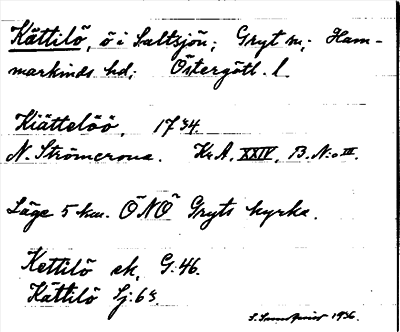 Kättilö, ö i Saltsjön; Gryt sn; Ham-
markinds hd; Östergötl. l
Kiättelöö, 1734.
N. Strömcrona. Kr. A. XXIV. B. N:o III.
Läge 5 km. ÖNÖ Gryts kyrka.
Kettilö ek. G. 46.
Kättilö Sj: 63.
1936.